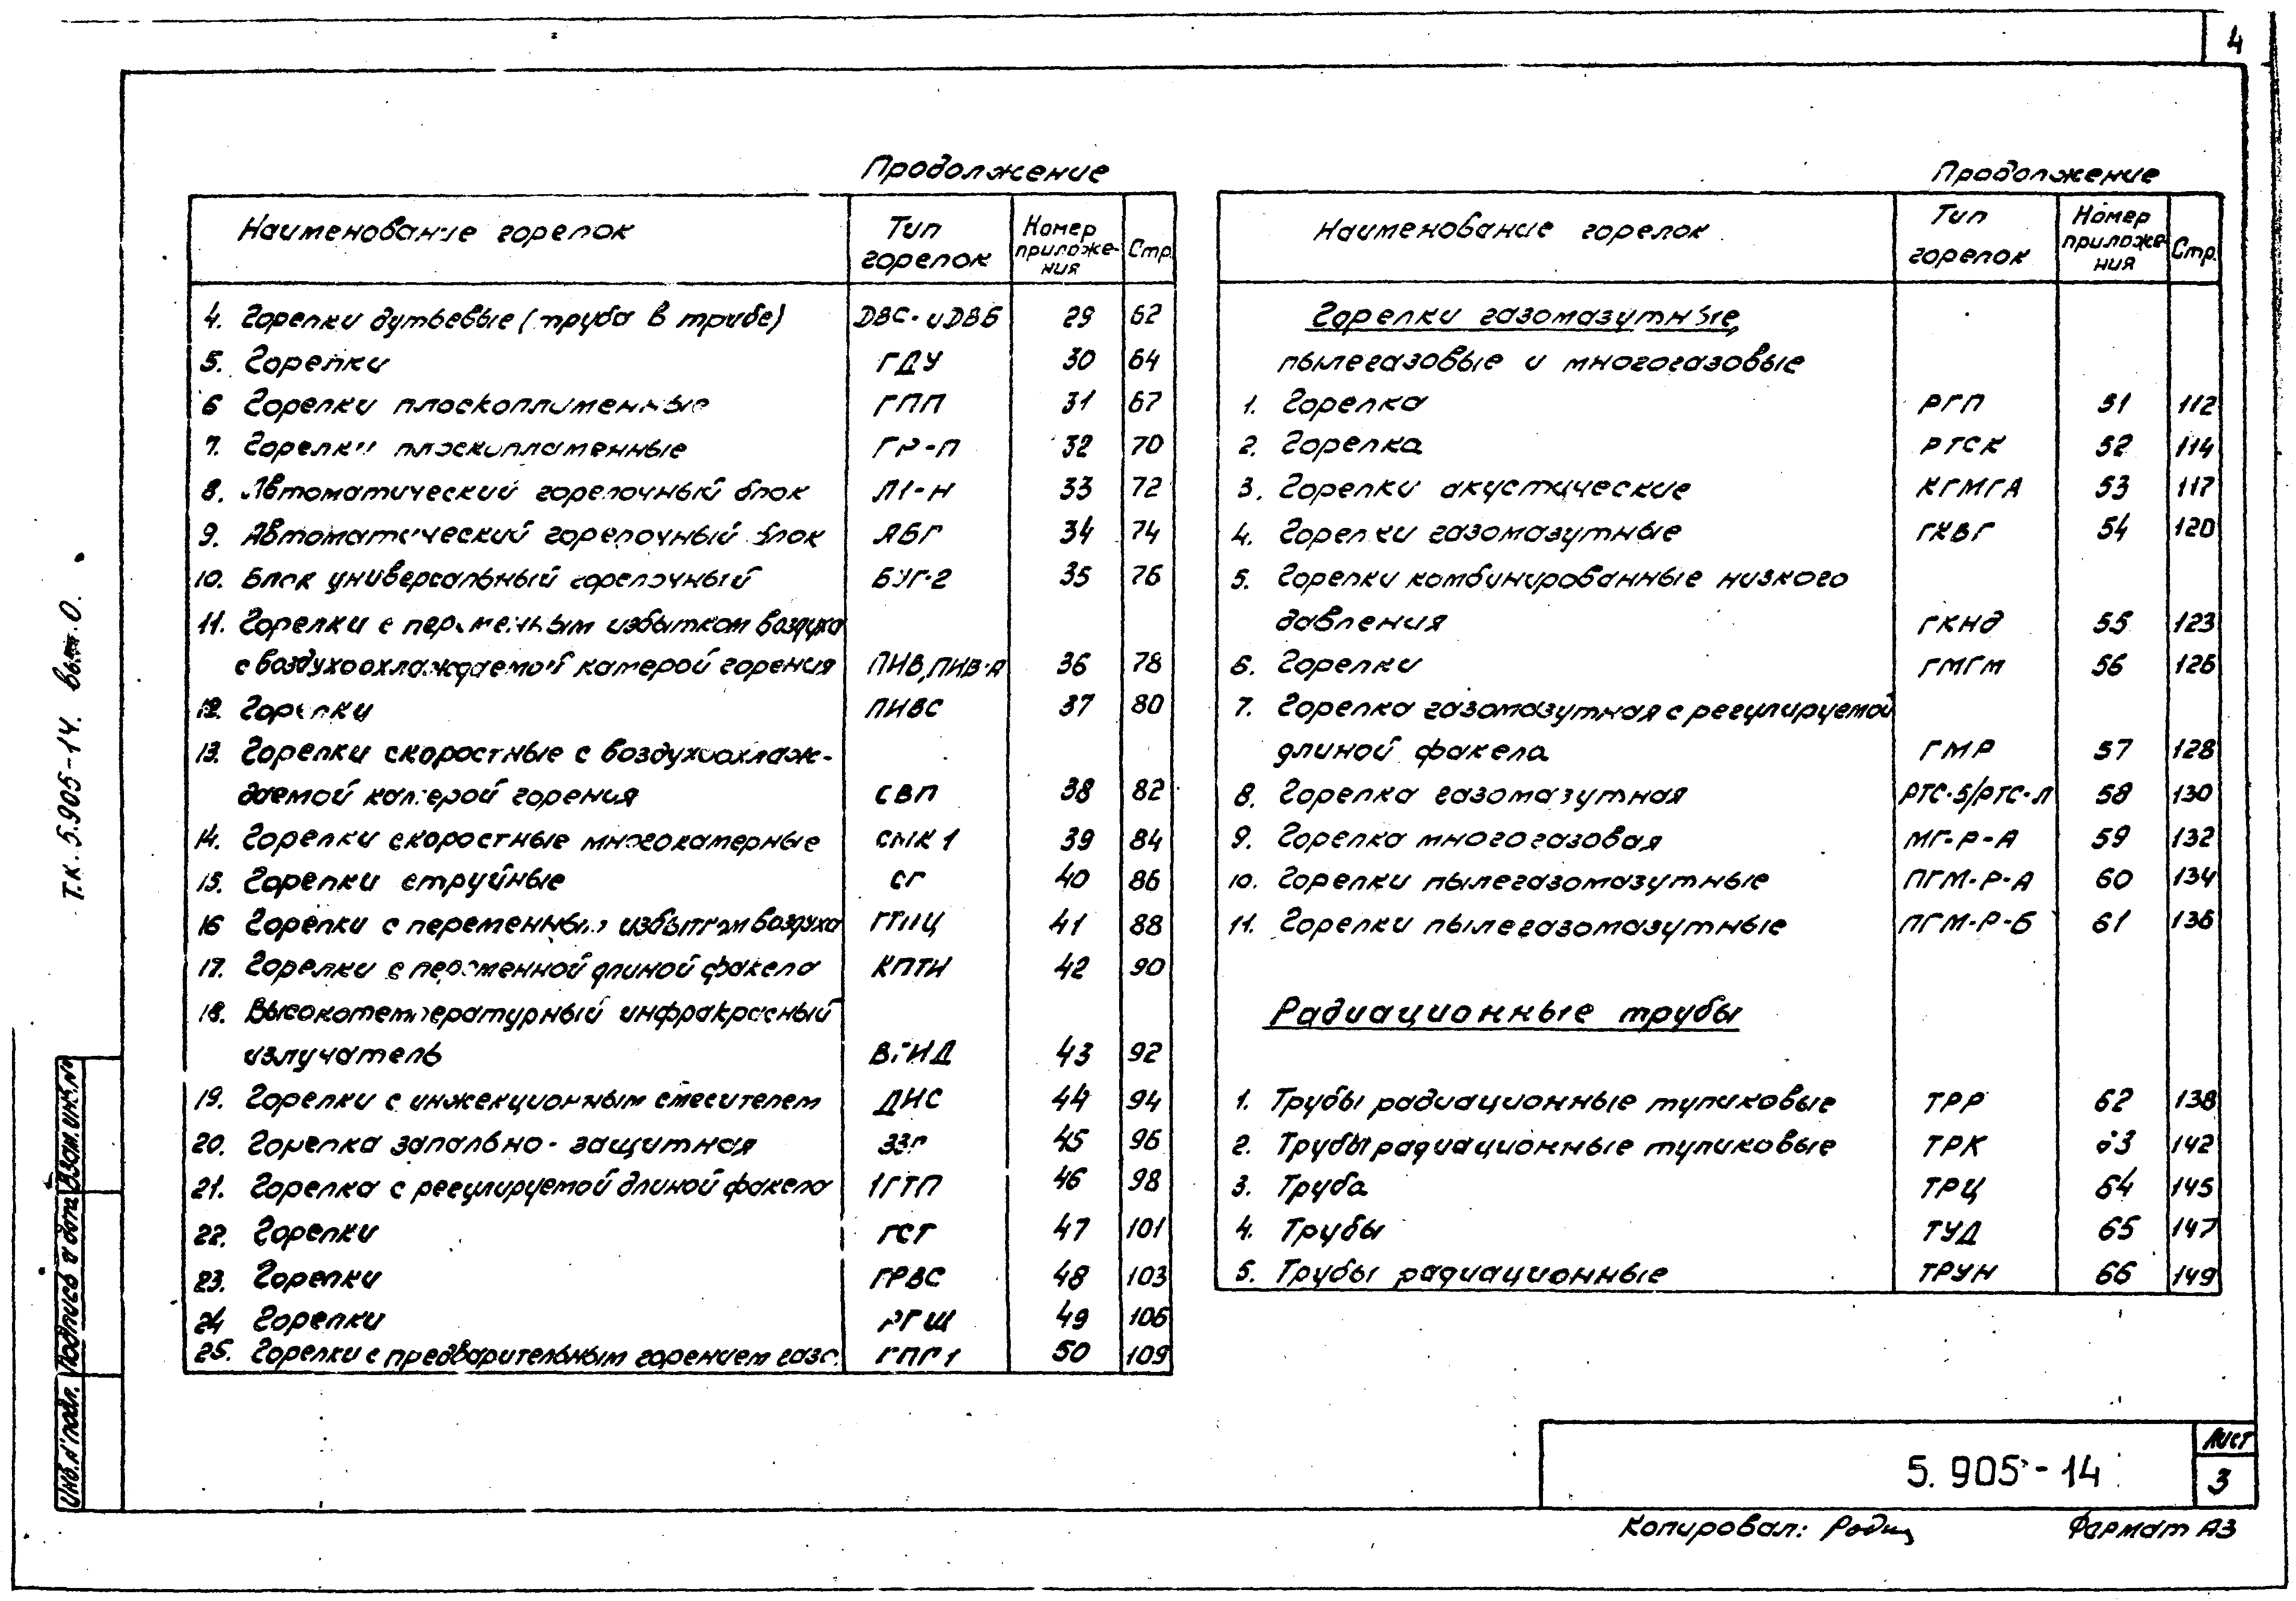 4
Продолжение
Наименование горелок Тип горелок Номер приложе-ния Стр.
4. Горелки дутьевые (труба в трубе) ДВС и ДВБ 29 62
5. Горелки ГДУ 30 64
6 Горелки плоскопламенные ГПП 31 67
7. Горелки плоскопламенные ГР-П 32 70
8. Автоматический горелочный блок Л1-Н 33 72
9. Автоматический горелочный блок АБГ 34 74
10. Блок универсальный горелочный БУГ-2 35 76
11. Горелки с переменным избытком воздуха
с воздухоохлаждаемой камерой горения ПИВ, ПИВ-А 36 78
12. Горелки ПИВС 37 80
13. Горелки скоростные с воздухоохлаж-
даемой камерой горения СВП 38 82
14. Горелки скоростные многокамерные СМК 1 39 84
15. Горелки струйные СГ 40 86
16 Горелки с переменным избытком воздуха ГТПЦ 41 88
17. Горелки с переменной длиной факела КПТИ 42 90
18. Высокотемпературный инфракрасный
излучатель 43 92
19. Горелки с инжекционным смесителем ДНС 44 94
20. Горелка запально-защитная ЗЗГ 45 96
21. Горелка с регулируемой длиной факела 1ГТП 46 98
22. Горелки ГСТ 47 101
23. Горелки ГРВС 48 103
24 Горелки РГШ 49 106
25. Горелки с предварительным горением газа ГПГ1 50 109
Продолжение
Наименование горелок Тип горелок Номер приложе-ния Стр.
Горелки газомазутные,
пылегазовые и многогазовые
1. Горелка РГП 51 112
2. Горелка РТСК 52 114
3. Горелки акустические КГМГА 53 117
4. Горелки газомазутные ГКВГ 54 120
5. Горелки комбинированные низкого
давления ГКНД 55 123
6. Горелки ГМГМ 56 126
7. Горелка газомазутная с регулируемой
длиной факела ГМР 57 128
8. Горелка газомазутная РТС-5/РТС-Л 58 130
9. Горелка многогазовая МГ-Р-А 59 132
10. Горелки пылегазомазутные ПГМ-Р-А 60 134
11. Горелки пылегазомазутные ПГМ-Р-Б 61 136
Радиационные трубы
1. Трубы радиационные тупиковые ТРР 62 138
2. Трубы радиационные тупиковые ТРК 63 142
3. Труба ТРЦ 64 145
4. Трубы ТУД 65 147
5. Трубы радиационные ТРУН 66 149
Т.К. 5.905-14. вып. 0.
Инв.№ подл. Подпись и дата Взам.инв.№
5.905-14
Лист
3
Копировал: Формат А3